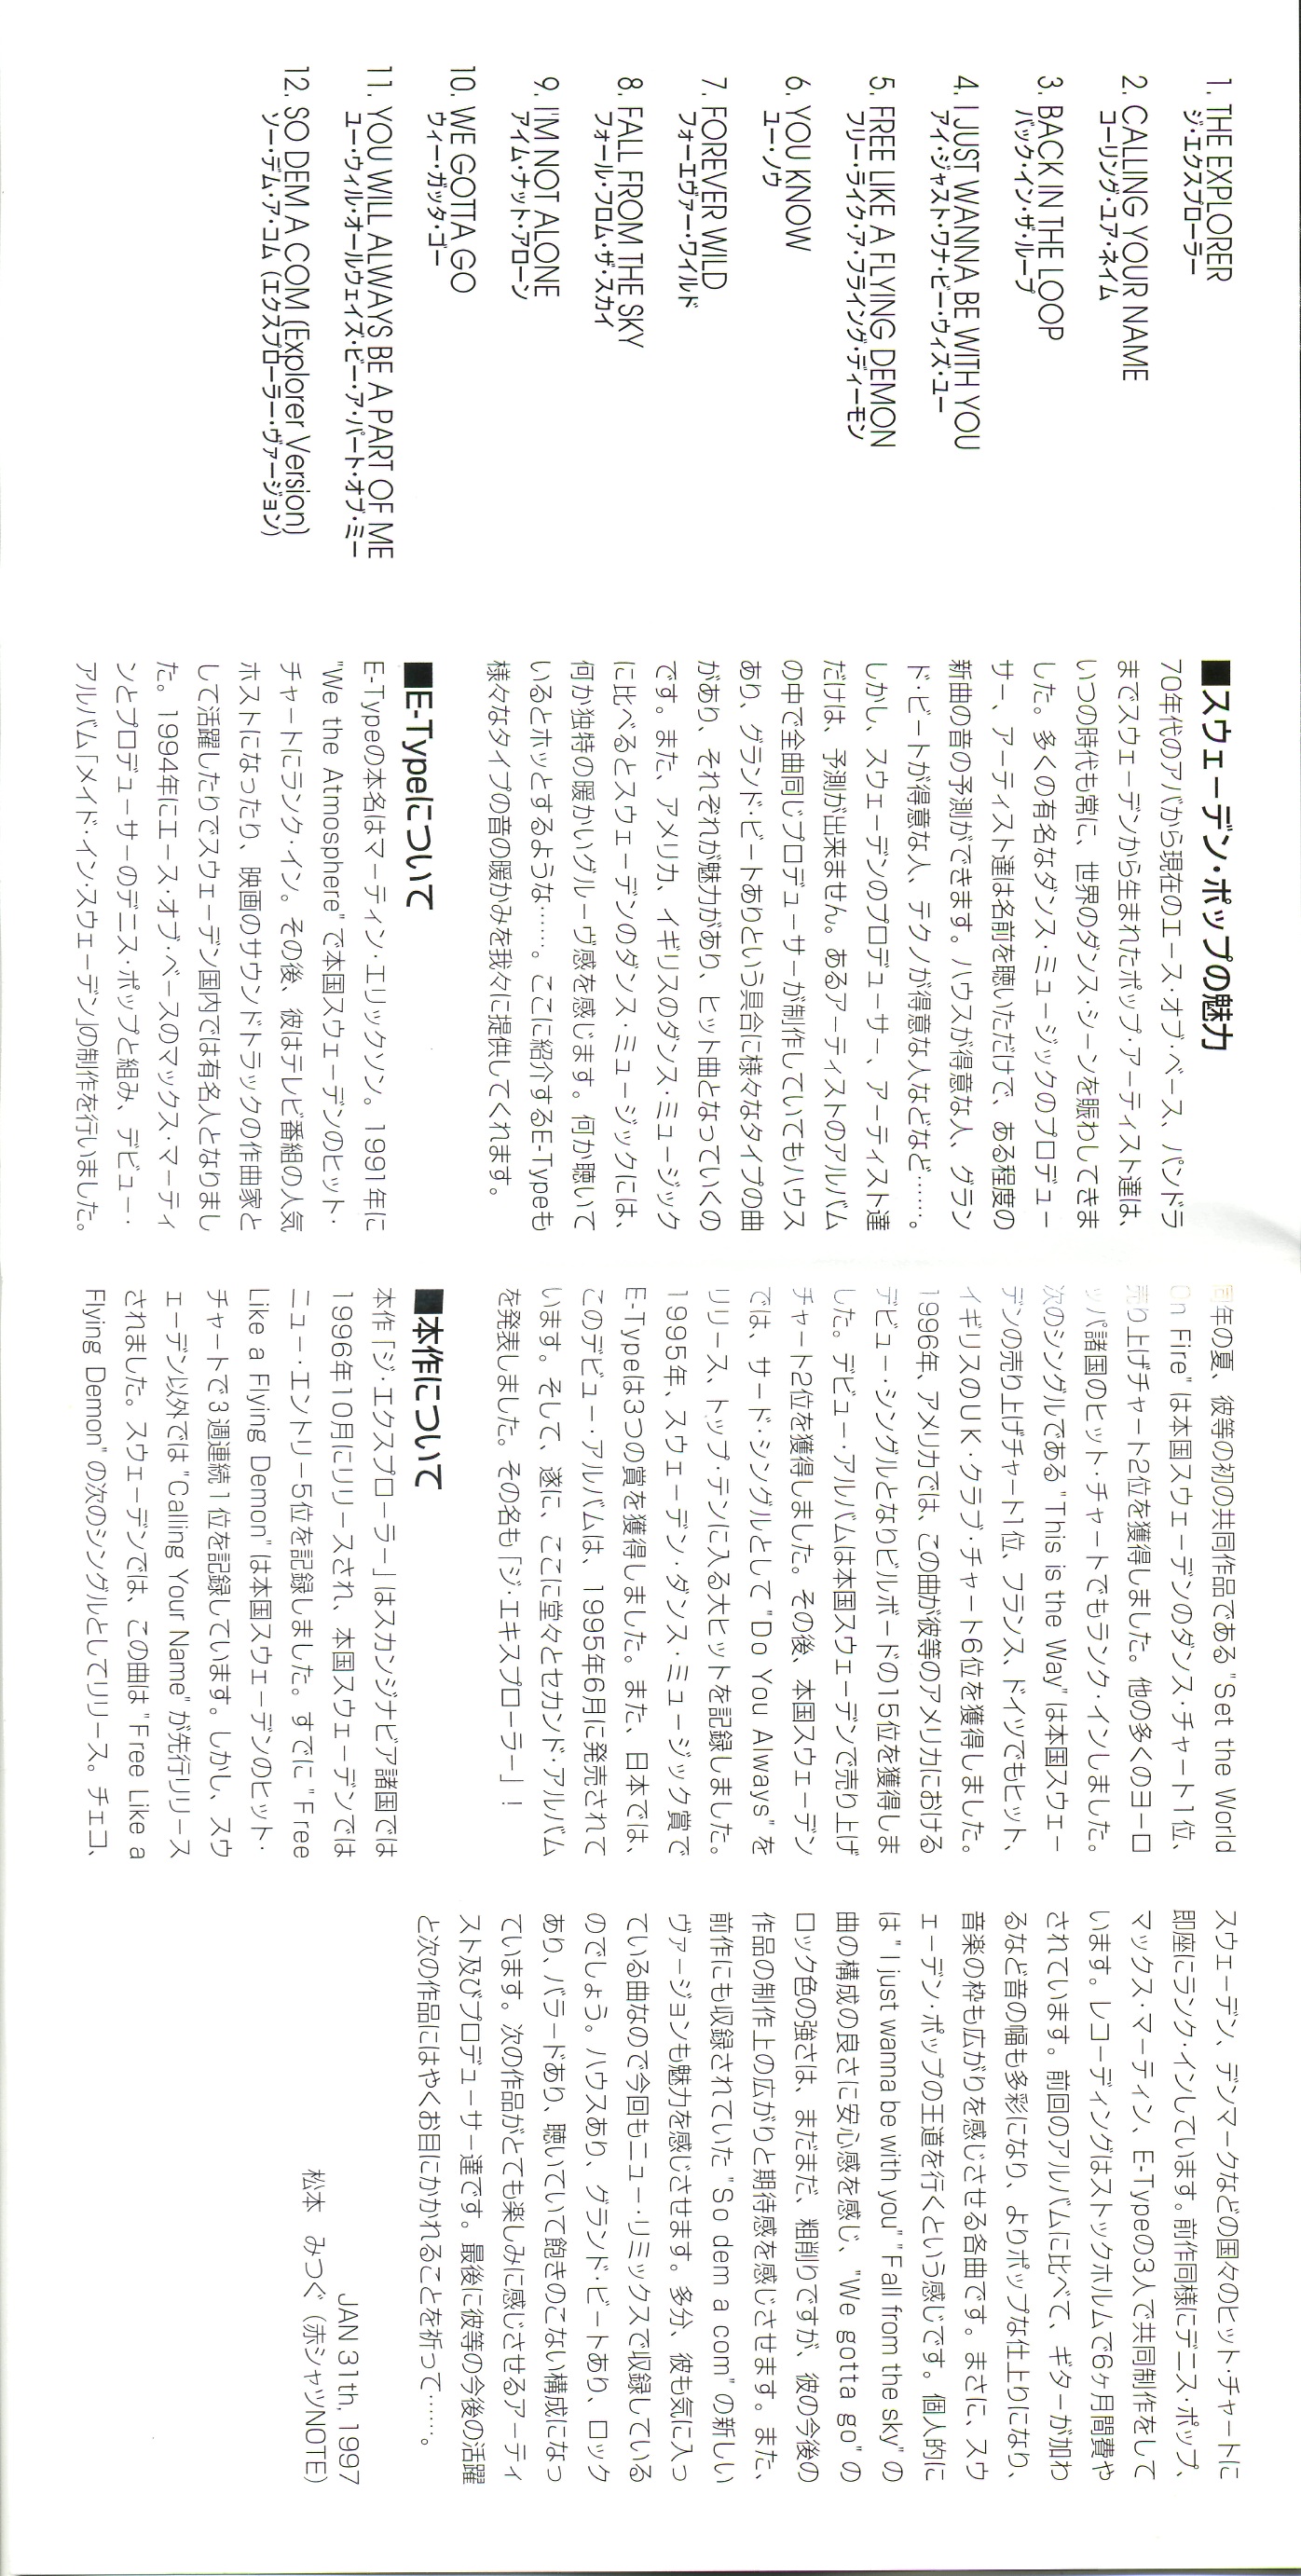 1. THE EXPLORER
ジ・エクスプローラー
2. CALLING YOUR NAME
コーリング・ユア・ネイム
3. BACK IN THE LOOP
バック・イン・ザ・ループ
4. I JUST WANNA BE WITH YOU
アイ・ジャスト・ワナ・ビー・ウィズ・ユー
5. FREE LIKE A FLYING DEMON
フリー・ライク・ア・フライング・ディーモン
6. YOU KNOW
ユー・ノウ
7. FOREVER WILD
フォーエヴァー・ワイルド
8. FALL FROM THE SKY
フォール・フロム・ザ・スカイ
9. I'M NOT ALONE
アイム・ナット・アローン
10. WE GOTTA GO
ウィー・ガッタ・ゴー
11. YOU WILL ALWAYS BE A PART OF ME
ユー・ウィル・オールウェイズ・ビー・ア・パート・オブ・ミー
12. SO DEM A COM (Explorer Version)
ソー・デム・ア・コム（エクスプローラー・ヴァージョン）
■スウェーデン・ポップの魅力
70年代のアバから現在のエース・オブ・ベース、パンドラ
までスウェーデンから生まれたポップ・アーティスト達は、
いつの時代も常に、世界のダンス・シーンを賑わしてきま
した。多くの有名なダンス・ミュージックのプロデュー
サー、アーティスト達は名前を聴いただけで、ある程度の
新曲の音の予測ができます。ハウスが得意な人、グラン
ド・ビートが得意な人、テクノが得意な人などなど……。
しかし、スウェーデンのプロデューサー、アーティスト達
だけは、予測が出来ません。あるアーティストのアルバム
の中で全曲同じプロデューサーが制作していてもハウス
あり、グランド・ビートありという具合に様々なタイプの曲
があり、それぞれが魅力があり、ヒット曲となっていくの
です。また、アメリカ、イギリスのダンス・ミュージック
に比べるとスウェーデンのダンス・ミュージックには、
何か独特の暖かいグルーヴ感を感じます。何か聴いて
いるとホッとするような……。ここに紹介するE-Typeも
様々なタイプの音の暖かみを我々に提供してくれます。
■E-Typeについて
E-Typeの本名はマーティン・エリックソン。1991年に
"We the Atmosphere"で本国スウェーデンのヒット・
チャートにランク・イン。その後、彼はテレビ番組の人気
ホストになったり、映画のサウンドトラックの作曲家と
して活躍したりでスウェーデン国内では有名人となりまし
た。1994年にエース・オブ・ベースのマックス・マーティ
ンとプロデューサーのデニス・ポップと組み、デビュー・
アルバム「メイド・イン・スウェーデン」の制作を行いました。
同年の夏、彼等の初の共同作品である"Set the World
On Fire"は本国スウェーデンのダンス・チャート1位、
売り上げチャート2位を獲得しました。他の多くのヨーロ
ッパ諸国のヒット・チャートでもランク・インしました。
次のシングルである"This is the Way"は本国スウェー
デンの売り上げチャート1位、フランス、ドイツでもヒット、
イギリスのUK・クラブ・チャート6位を獲得しました。
1996年、アメリカでは、この曲が彼等のアメリカにおける
デビュー・シングルとなりビルボードの15位を獲得しま
した。デビュー・アルバムは本国スウェーデンで売り上げ
チャート2位を獲得しました。その後、本国スウェーデン
では、サード・シングルとして"Do You Always"を
リリース、トップ・テンに入る大ヒットを記録しました。
1995年、スウェーデン・ダンス・ミュージック賞で
E-Typeは3つの賞を獲得しました。また、日本では、
このデビュー・アルバムは、1995年6月に発売されて
います。そして、遂に、ここに堂々とセカンド・アルバム
を発表しました。その名も「ジ・エキスプローラー」！
■本作について
本作「ジ・エクスプローラー」はスカンジナビア諸国では
1996年10月にリリースされ、本国スウェーデンでは
ニュー・エントリー5位を記録しました。すでに"Free
Like a Flying Demon"は本国スウェーデンのヒット・
チャートで3週連続1位を記録しています。しかし、スウ
ェーデン以外では"Calling Your Name"が先行リリース
されました。スウェーデンでは、この曲は"Free Like a
Flying Demon"の次のシングルとしてリリース。チェコ、
スウェーデン、デンマークなどの国々のヒット・チャートに
即座にランク・インしています。前作同様にデニス・ポップ、
マックス・マーティン、E-Typeの3人で共同制作をして
います。レコーディングはストックホルムで6ヶ月間費や
されています。前回のアルバムに比べて、ギターが加わ
るなど音の幅も多彩になり、よりポップな仕上りになり、
音楽の枠も広がりを感じさせる各曲です。まさに、スウ
ェーデン・ポップの王道を行くという感じです。個人的に
は"I just wanna be with you""Fall from the sky"の
曲の構成の良さに安心感を感じ、"We gotta go"の
ロック色の強さは、まだまだ、粗削りですが、彼の今後の
作品の制作上の広がりと期待感を感じさせます。また、
前作にも収録されていた"So dem a com"の新しい
ヴァージョンも魅力を感じさせます。多分、彼も気に入っ
ている曲なので今回もニュー・リミックスで収録している
のでしょう。ハウスあり、グランド・ビートあり、ロック
あり、バラードあり、聴いていて飽きのこない構成になっ
ています。次の作品がとても楽しみに感じさせるアーティ
スト及びプロデューサー達です。最後に彼等の今後の活躍
と次の作品にはやくお目にかかれることを祈って……。
JAN 31th, 1997
松本　みつぐ（赤シャツNOTE）